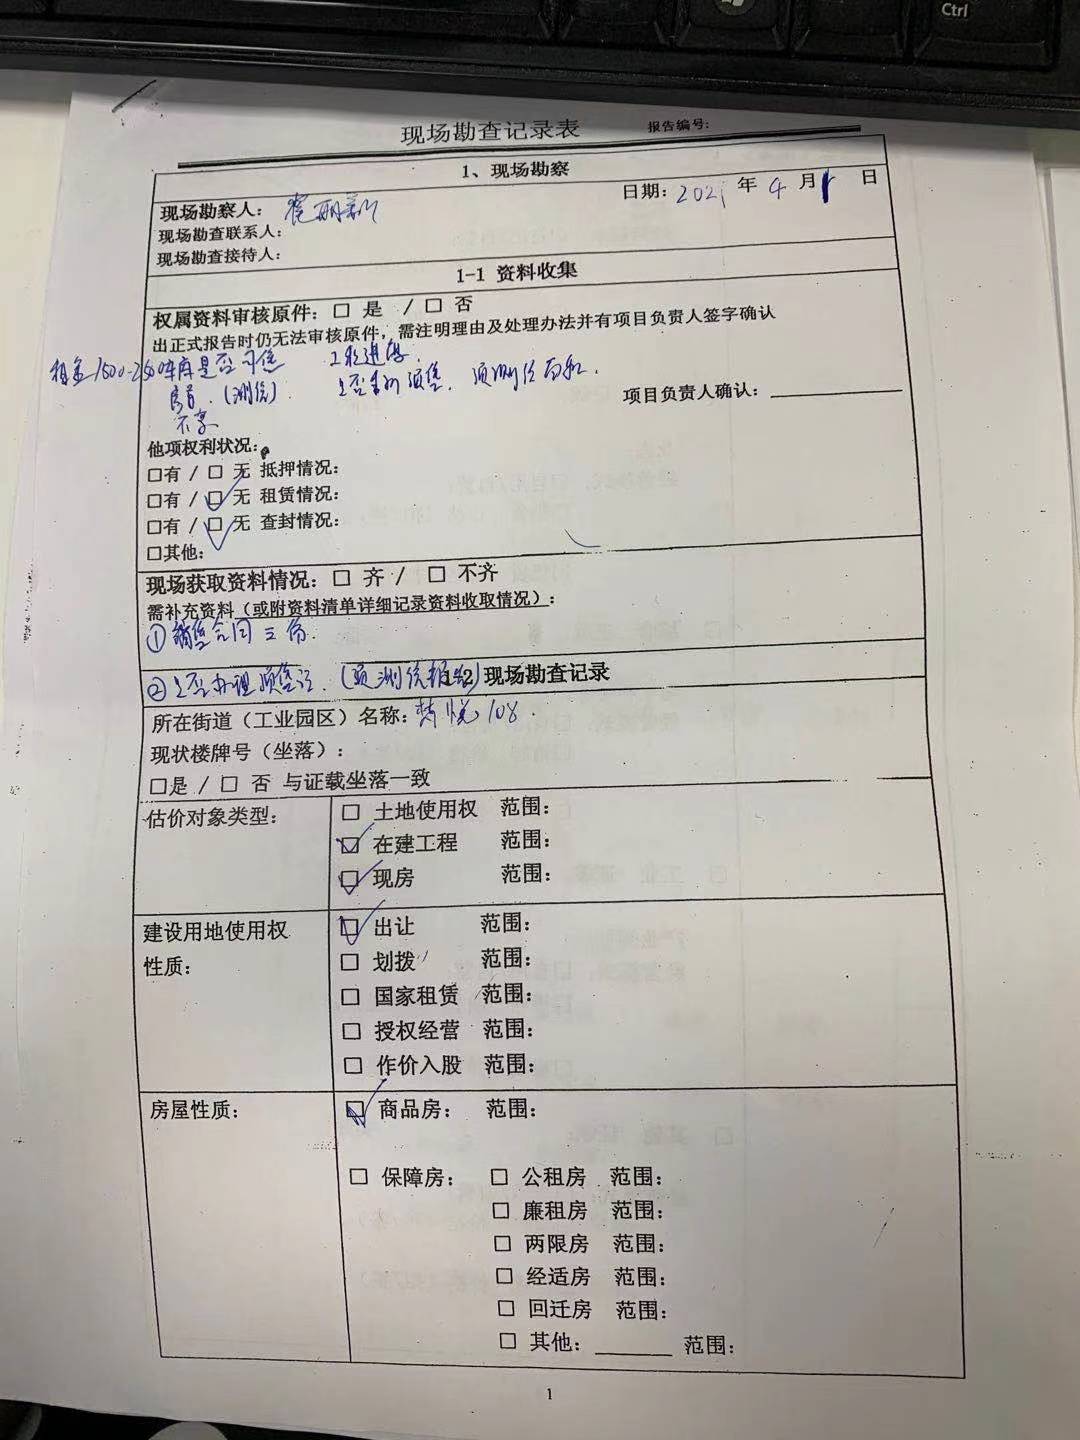 Ctrl
现场勘查记录表 报告编号:
1、现场勘察
日期: 2021 年 4 月 日
现场勘察人:
现场勘查联系人:
现场勘查接待人:
1-1 资料收集
权属资料审核原件: □ 是 / □ 否
出正式报告时仍无法审核原件, 需注明理由及处理办法并有项目负责人签字确认
租金1500-2500 车库是否可售 工程进度.
(测绘).
项目负责人确认:
他项权利状况:
□有 / □ 无 抵押情况:
□有 / ☑ 无 租赁情况:
□有 / ☑ 无 查封情况:
□其他:
现场获取资料情况: □ 齐 / □ 不齐
需补充资料(或附资料清单详细记录资料收取情况):
① 销售合同三份.
② 是否办理预售证. (预测绘报告)
1-2 现场勘查记录
所在街道(工业园区)名称: 108
现状楼牌号(坐落):
□是 / □ 否 与证载坐落一致
估价对象类型: □ 土地使用权 范围:
☑ 在建工程 范围:
☑ 现房 范围:
建设用地使用权性质: ☑ 出让 范围:
□ 划拨 范围:
□ 国家租赁 范围:
□ 授权经营 范围:
□ 作价入股 范围:
房屋性质: ☑ 商品房: 范围:
□ 保障房: □ 公租房 范围:
□ 廉租房 范围:
□ 两限房 范围:
□ 经适房 范围:
□ 回迁房 范围:
□ 其他:______ 范围:
1